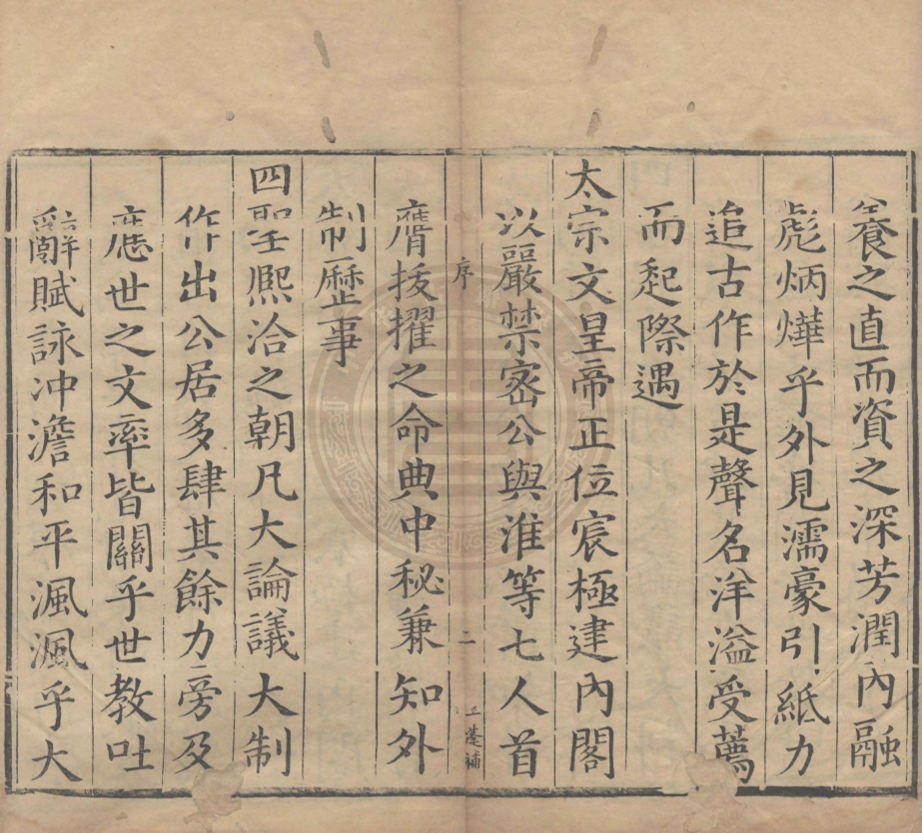 養之直而資之深芳潤內融
彪炳燁乎外見濡豪引紙力
追古作於是聲名洋溢受薦
而起際遇
太宗文皇帝正位宸極建內閣
以嚴禁密公與淮等七人首
序
二
補
膺拔擢之命典中秘兼知外
制歷事
四聖熈洽之朝凡大論議大制
作出公居多肆其餘力旁及
應世之文率皆關乎世教吐
辭賦詠冲澹和平渢渢乎大